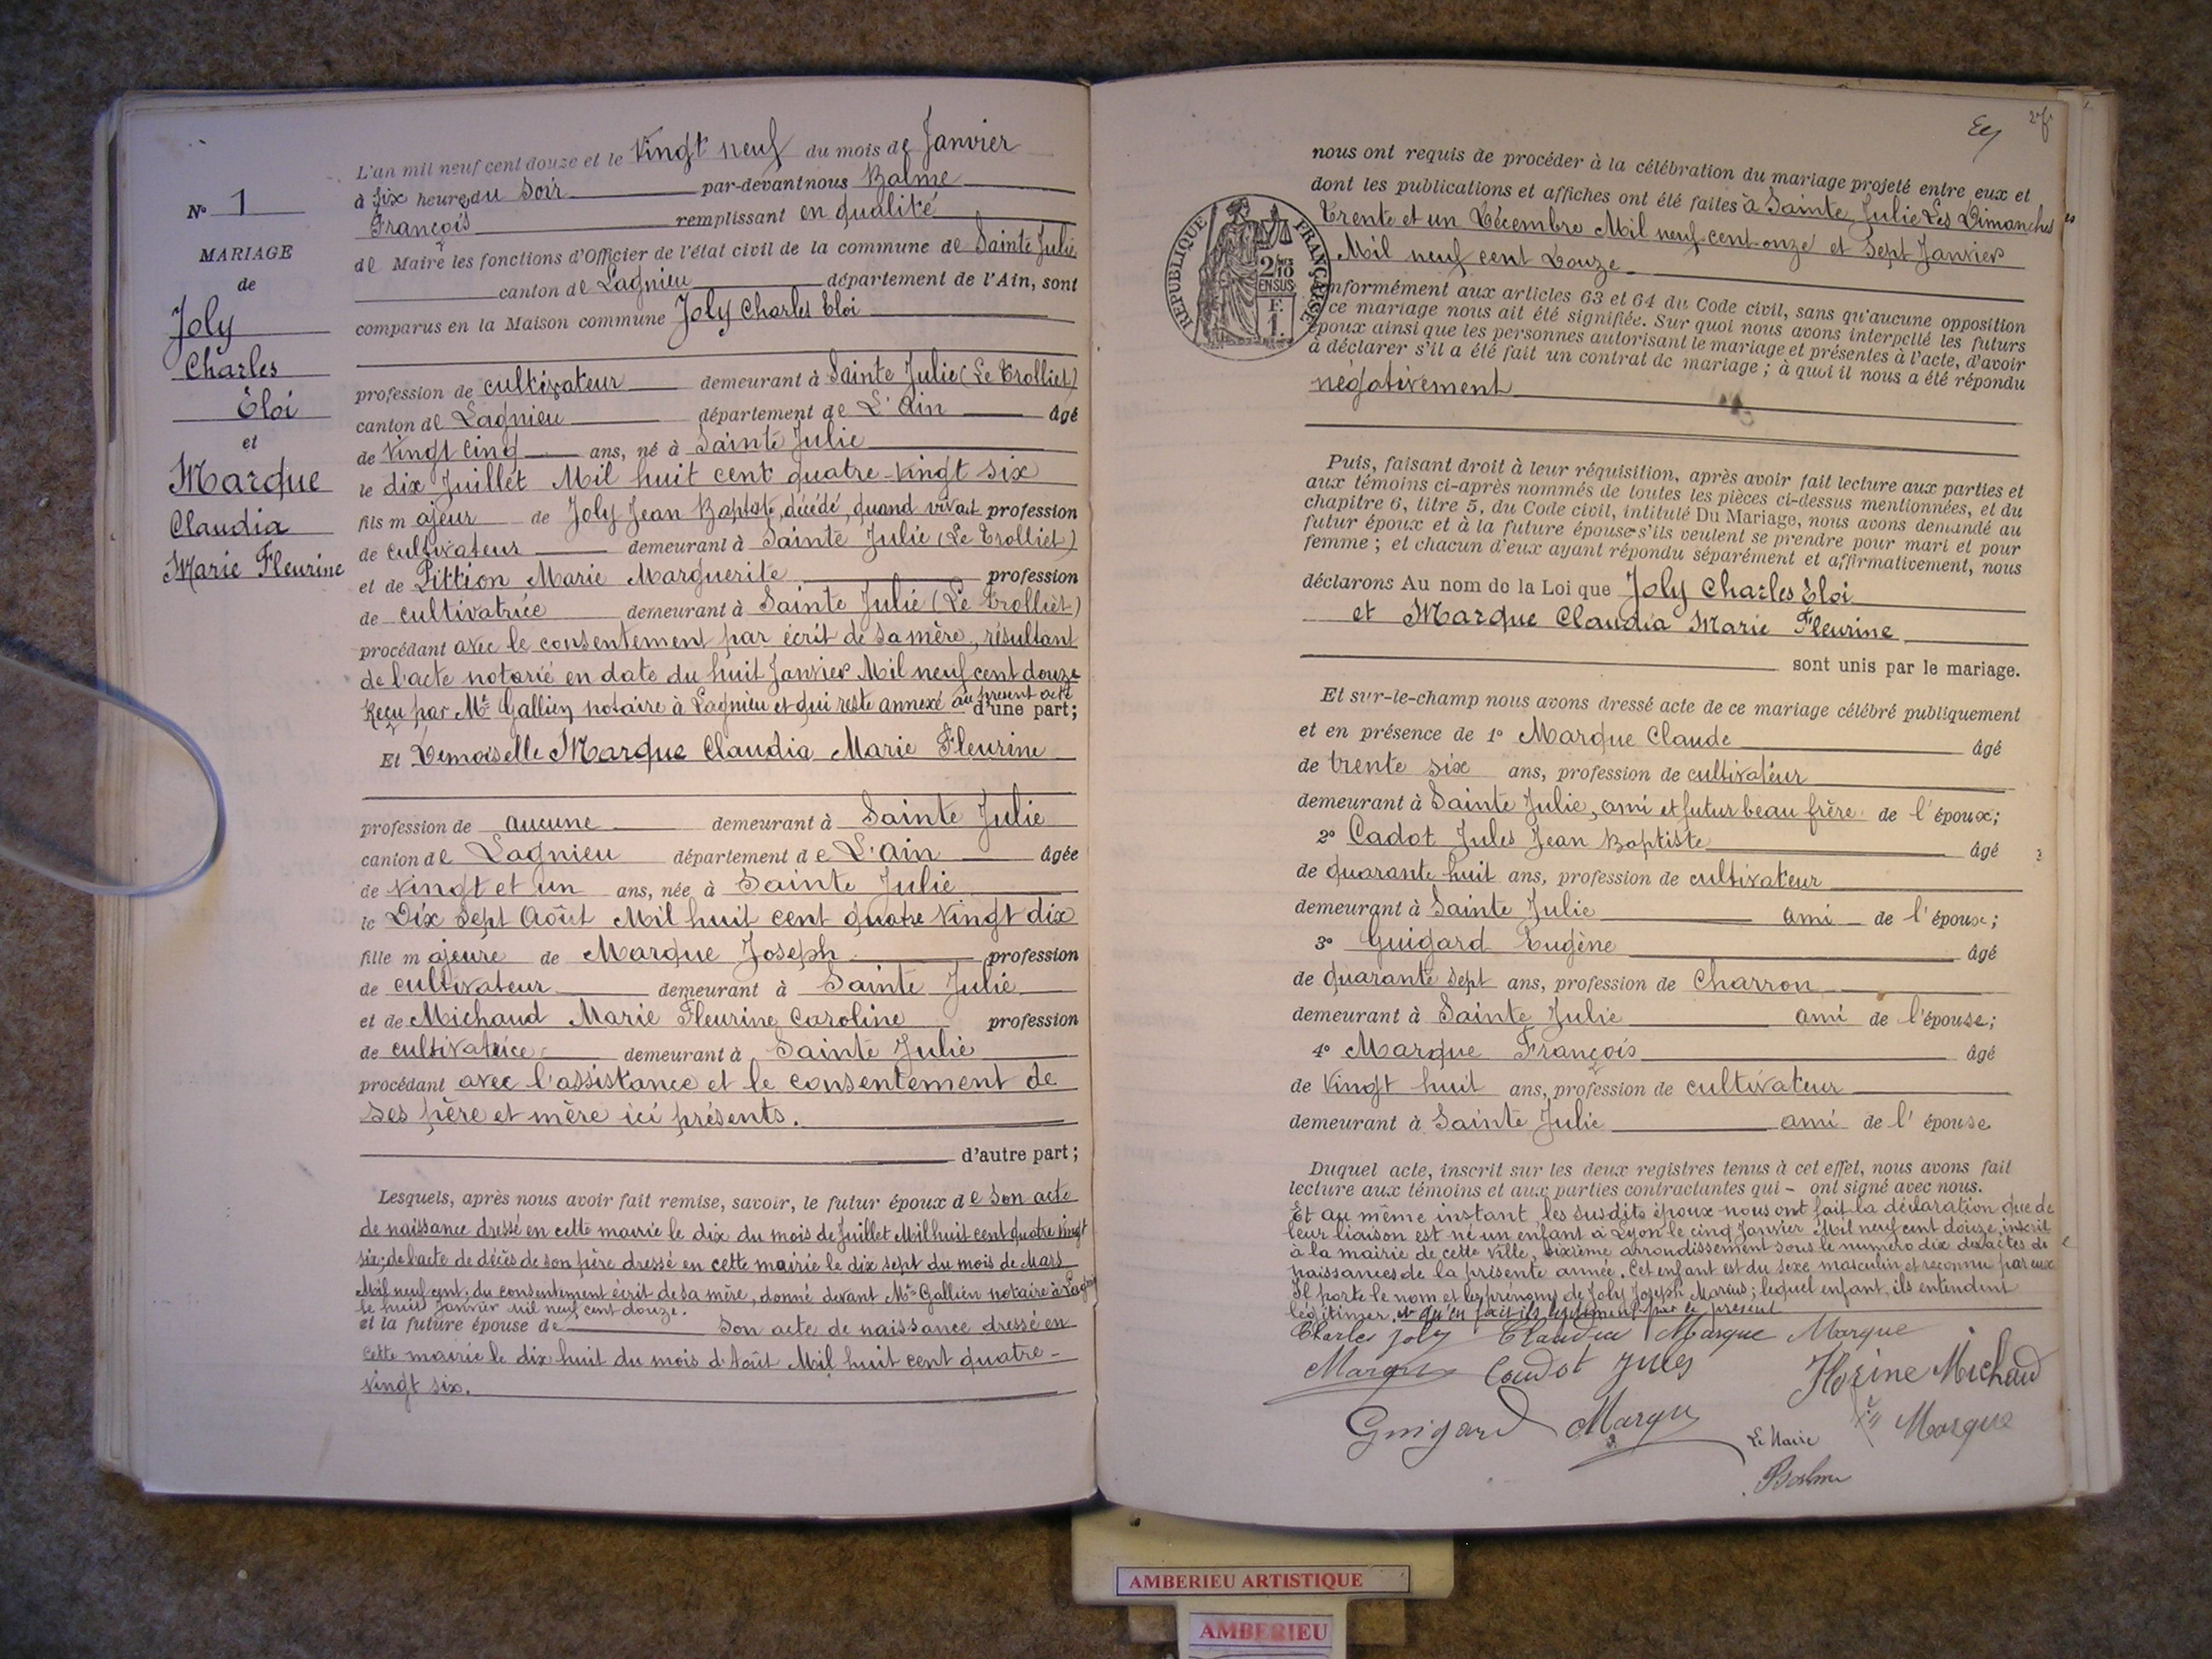 N° 1
MARIAGE
de
Joly
Charles
Eloi
et
Marque
Claudia
Marie Fleurine
L'an mil neuf cent douze et le vingt neuf du mois de Janvier
à six heures du soir par-devant nous Balme
François remplissant en qualité
de Maire les fonctions d'Officier de l'état civil de la commune de Sainte Julie
canton de Lagnieu département de l'Ain, sont
comparus en la Maison commune Joly Charles Eloi
profession de cultivateur demeurant à Sainte Julie (Le Trolliet)
canton de Lagnieu département de L'Ain âgé
de vingt cinq ans, né à Sainte Julie
le dix Juillet Mil huit cent quatre-vingt six
fils majeur de Joly Jean Baptiste, décédé, quand vivait profession
de cultivateur demeurant à Sainte Julie (Le Trolliet)
et de Pittion Marie Marguerite profession
de cultivatrice demeurant à Sainte Julie (Le Trolliet)
procédant avec le consentement par écrit de sa mère, résultant
de l'acte notarié en date du huit Janvier Mil neuf cent douze
Reçu par Me Gallien notaire à Lagnieu et qui reste annexé au présent acte d'une part;
Et Demoiselle Marque Claudia Marie Fleurine
profession de aucune demeurant à Sainte Julie
canton de Lagnieu département de L'Ain âgée
de vingt et un ans, née à Sainte Julie
le Dix Sept Août Mil huit cent quatre vingt dix
fille majeure de Marque Joseph profession
de cultivateur demeurant à Sainte Julie
et de Michaud Marie Fleurine Caroline profession
de cultivatrice demeurant à Sainte Julie
procédant avec l'assistance et le consentement de
ses père et mère ici présents.
d'autre part;
Lesquels, après nous avoir fait remise, savoir, le futur époux de son acte
de naissance dressé en cette mairie le dix du mois de Juillet Mil huit cent quatre vingt
six; de l'acte de décès de son père dressé en cette mairie le dix sept du mois de Mars
Mil neuf cent; du consentement écrit de sa mère, donné devant Me Gallien notaire à Lagnieu
le huit Janvier mil neuf cent douze.
et la future épouse de son acte de naissance dressé en
cette mairie le dix huit du mois d'Août Mil huit cent quatre-
vingt six.
nous ont requis de procéder à la célébration du mariage projeté entre eux et
dont les publications et affiches ont été faites à Sainte Julie Les Dimanches
Trente et un Décembre Mil neuf cent onze et Sept Janvier
Mil neuf cent Douze
REPUBLIQUE FRANÇAISE
2/10 EN SUS
F. 1.
conformément aux articles 63 et 64 du Code civil, sans qu'aucune opposition
à ce mariage nous ait été signifiée. Sur quoi nous avons interpellé les futurs
époux ainsi que les personnes autorisant le mariage et présentes à l'acte, d'avoir
à déclarer s'il a été fait un contrat de mariage; à quoi il nous a été répondu
négativement
Puis, faisant droit à leur réquisition, après avoir fait lecture aux parties et
aux témoins ci-après nommés de toutes les pièces ci-dessus mentionnées, et du
chapitre 6, titre 5, du Code civil, intitulé Du Mariage, nous avons demandé au
futur époux et à la future épouse s'ils veulent se prendre pour mari et pour
femme; et chacun d'eux ayant répondu séparément et affirmativement, nous
déclarons Au nom de la Loi que Joly Charles Eloi
et Marque Claudia Marie Fleurine
sont unis par le mariage.
Et sur-le-champ nous avons dressé acte de ce mariage célébré publiquement
et en présence de 1° Marque Claude âgé
de trente six ans, profession de cultivateur
demeurant à Sainte Julie, ami et futur beau frère de l'époux;
2° Cadot Jules Jean Baptiste âgé
de quarante huit ans, profession de cultivateur
demeurant à Sainte Julie ami de l'épouse;
3° Guigard Eugène âgé
de quarante sept ans, profession de Charron
demeurant à Sainte Julie ami de l'épouse;
4° Marque François âgé
de vingt huit ans, profession de cultivateur
demeurant à Sainte Julie ami de l'épouse
Duquel acte, inscrit sur les deux registres tenus à cet effet, nous avons fait
lecture aux témoins et aux parties contractantes qui - ont signé avec nous.
Et au même instant, les susdits époux nous ont fait la déclaration que de
leur liaison est né un enfant à Lyon le cinq Janvier Mil neuf cent douze, inscrit
à la mairie de cette ville, sixième arrondissement sous le numéro dix des actes de
naissances de la présente année. Cet enfant est du sexe masculin et reconnu par eux
Il porte le nom et les prénoms de Joly Joseph Marius; lequel enfant, ils entendent
légitimer,
Charles Joly Claudia Marque Marque
Marque Caudot Jules Florine Michaud
Guigard Marque Fs Marque
Le Maire
Balme
AMBERIEU ARTISTIQUE
AMBERIEU